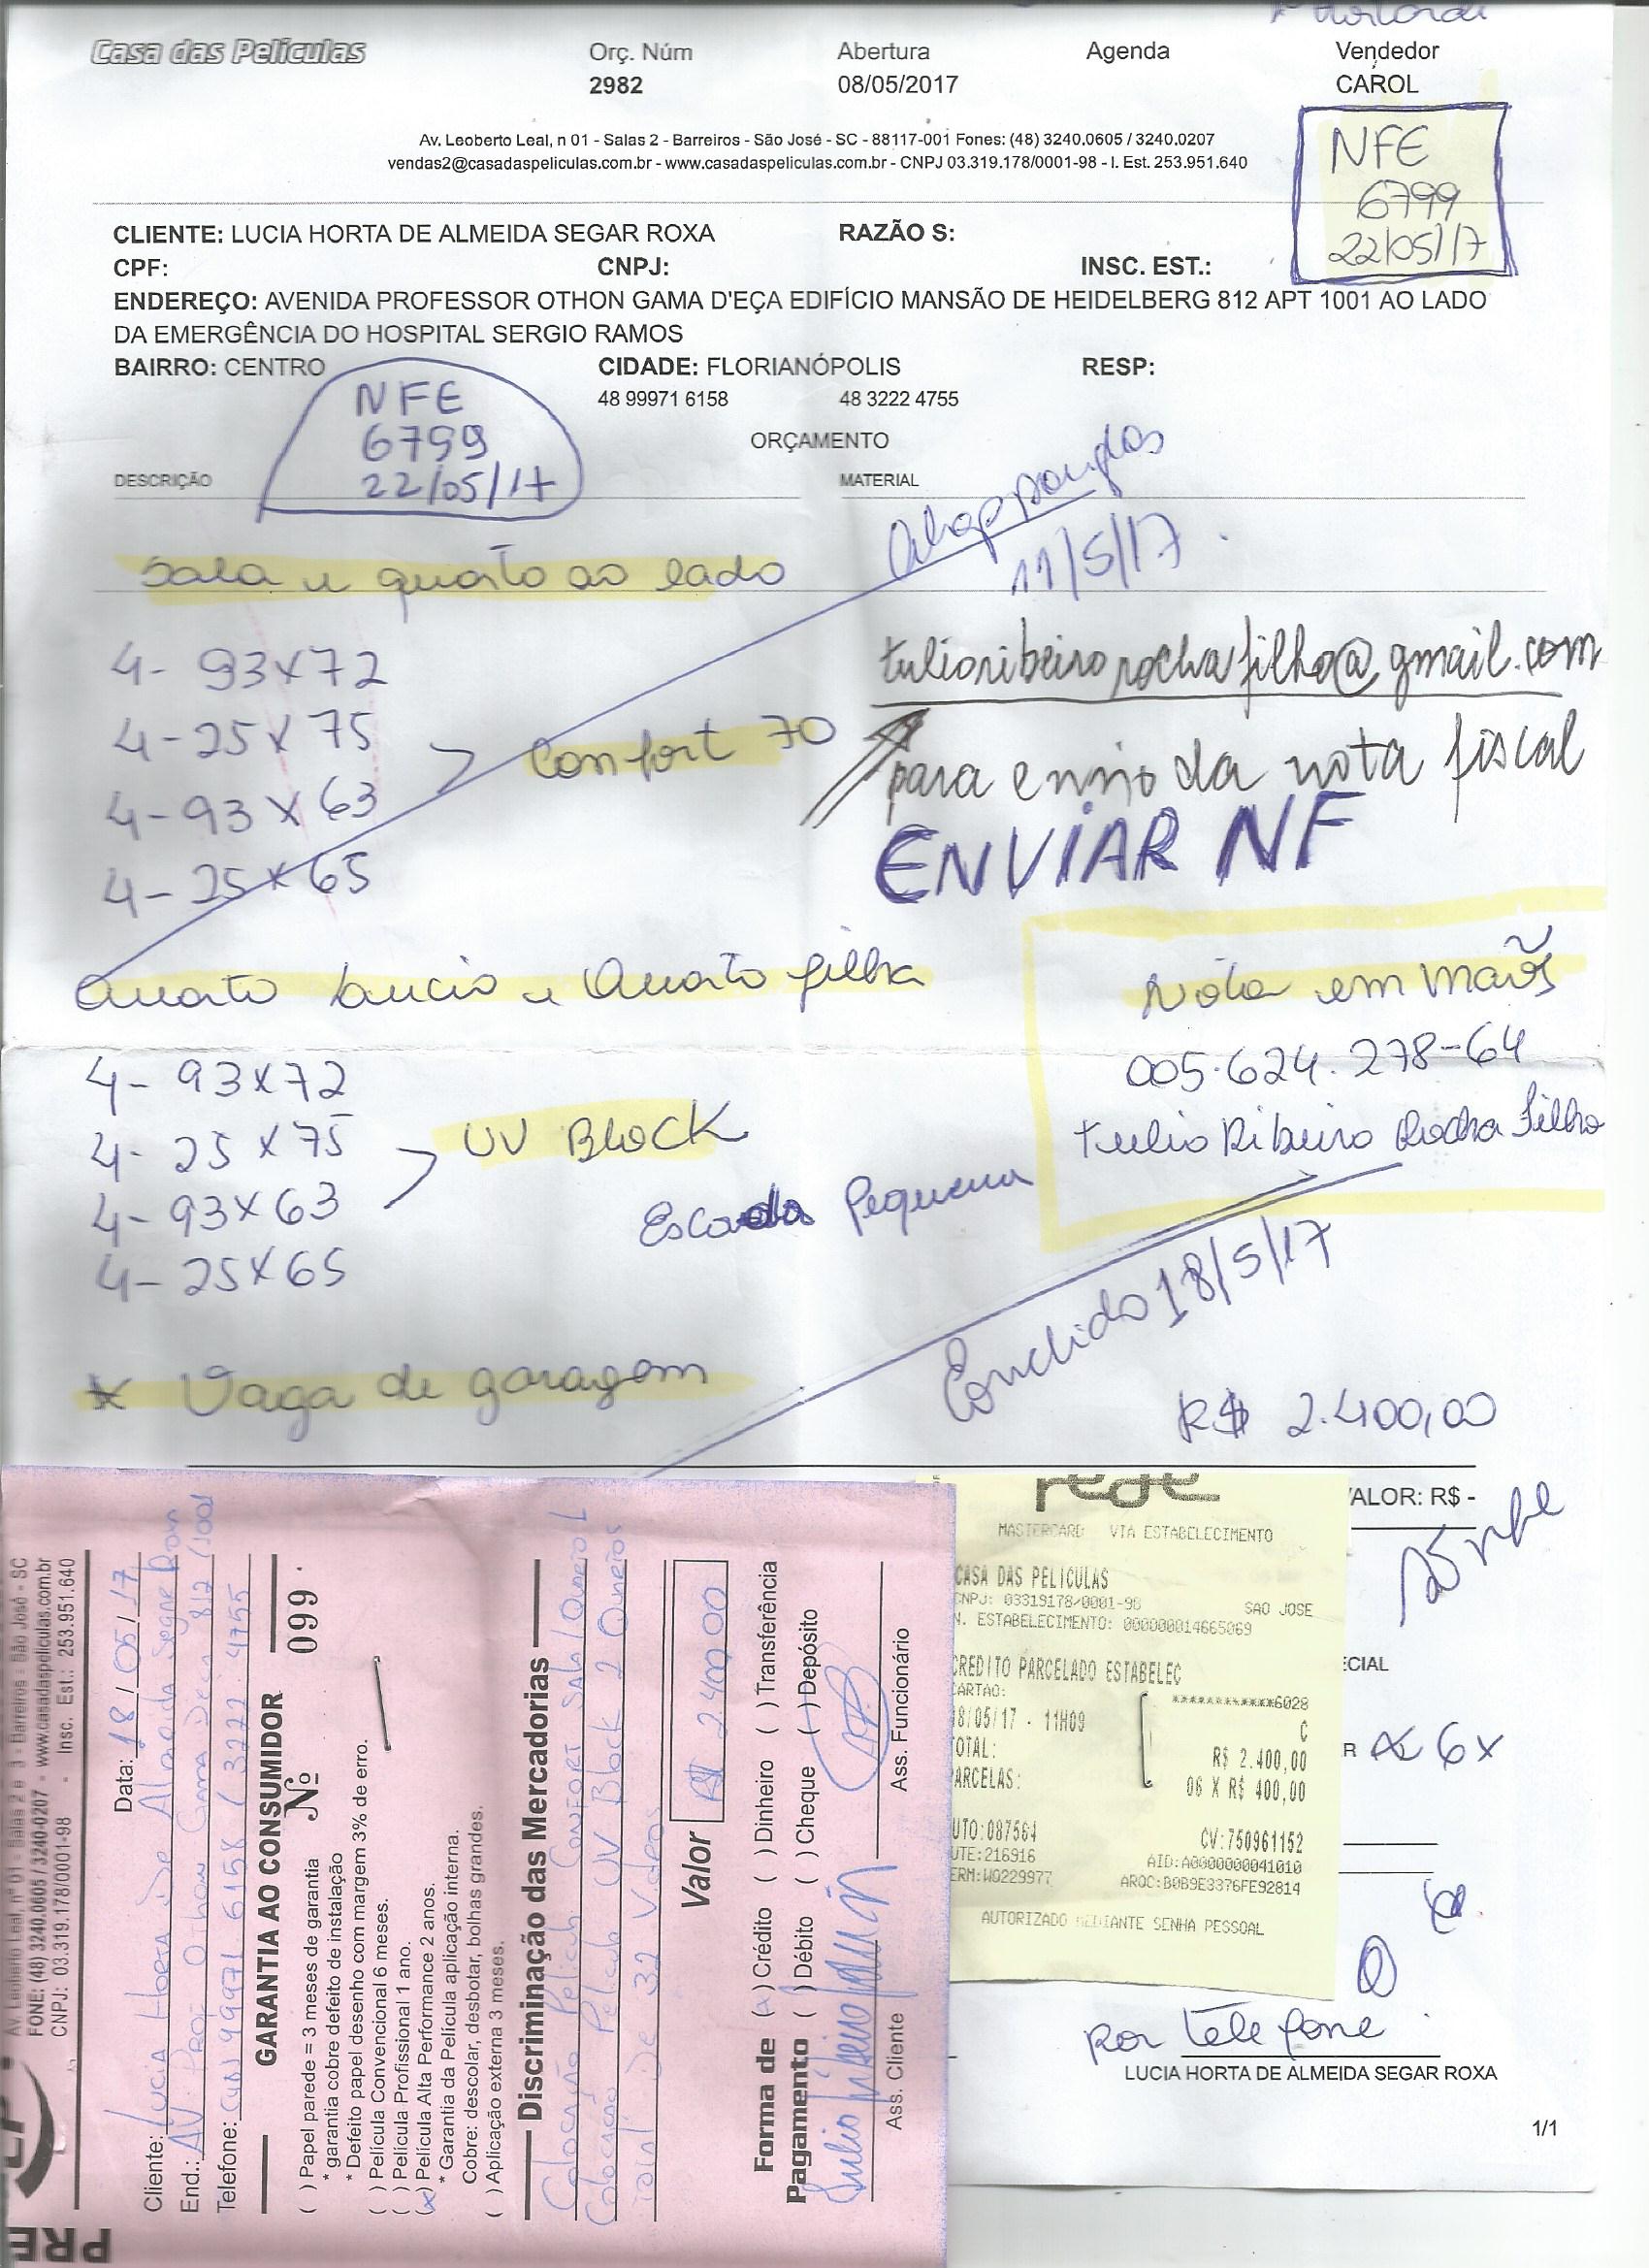 Casa das Películas
Orç. Núm
2982
Abertura
08/05/2017
Agenda
Vendedor
CAROL
Av. Leoberto Leal, n 01 - Salas 2 - Barreiros - São José - SC - 88117-001 Fones: (48) 3240.0605 / 3240.0207
vendas2@casadaspeliculas.com.br - www.casadaspeliculas.com.br - CNPJ 03.319.178/0001-98 - I. Est. 253.951.640
NFE
6799
22/05/17
CLIENTE: LUCIA HORTA DE ALMEIDA SEGAR ROXA RAZÃO S:
CPF: CNPJ: INSC. EST.:
ENDEREÇO: AVENIDA PROFESSOR OTHON GAMA D'EÇA EDIFÍCIO MANSÃO DE HEIDELBERG 812 APT 1001 AO LADO
DA EMERGÊNCIA DO HOSPITAL SERGIO RAMOS
BAIRRO: CENTRO CIDADE: FLORIANÓPOLIS RESP:
48 99971 6158 48 3222 4755
NFE
6799
22/05/17
ORÇAMENTO
DESCRIÇÃO MATERIAL
11/5/17
Sala e quarto ao lado
4- 93x72
4- 25x75
4- 93x63
4- 25x65
Confort 70
tulioribeirorochafilho@gmail.com
para envio da nota fiscal
ENVIAR NF
Quarto Lucia e Quarto filha
4- 93x72
4- 25x75
4- 93x63
4- 25x65
UV Block
Nota em mãos
005.624.278-64
Tulio Ribeiro Rocha Filho
Escada Pequena
Concluido 18/5/17
* Vaga de garagem
R$ 2.400,00
VALOR: R$ -
ECIAL
R
6x
por telefone
LUCIA HORTA DE ALMEIDA SEGAR ROXA
1/1
rede
MASTERCARD VIA ESTABELECIMENTO
CASA DAS PELICULAS
CNPJ: 03319178/0001-98 SAO JOSE
N. ESTABELECIMENTO: 000000014665069
CREDITO PARCELADO ESTABELEC
CARTAO: ************6028
18/05/17 - 11H09 C
TOTAL: R$ 2.400,00
PARCELAS: 06 X R$ 400,00
AUTO:087564 CV:750961152
UTE:216916 AID:A0000000041010
ERM:WQ229977 ARQC:B0B9E3376FE92814
AUTORIZADO MEDIANTE SENHA PESSOAL
PRE
Av. Leoberto Leal, nº 01 - Salas 2 e 3 - Barreiros - São José - SC
FONE: (48) 3240.0605 / 3240-0207 - www.casadaspeliculas.com.br
CNPJ: 03.319.178/0001-98 - Insc. Est.: 253.951.640
Data: 18/05/17
Cliente: Lucia Horta De Almeida Segar Roxa
End.: AV: Prof Othon Gama Deça 812/1001
Telefone: (48) 99971.6158 / 3222.4755
GARANTIA AO CONSUMIDOR Nº 099
( ) Papel parede = 3 meses de garantia
* garantia cobre defeito de instalação
* Defeito papel desenho com margem 3% de erro.
( ) Película Convencional 6 meses.
( ) Película Profissional 1 ano.
(x) Película Alta Performance 2 anos.
* Garantia da Película aplicação interna.
Cobre: descolar, desbotar, bolhas grandes.
( ) Aplicação externa 3 meses.
Discriminação das Mercadorias
Colocação Pelicula Confort Sala/Quarto 1
Colocação Pelicula UV Block 2 Quartos
Total De 32 Vidros
Valor R$ 2.400,00
Forma de Pagamento
(x) Crédito ( ) Dinheiro ( ) Transferência
( ) Débito ( ) Cheque ( ) Depósito
Ass. Cliente
Ass. Funcionário